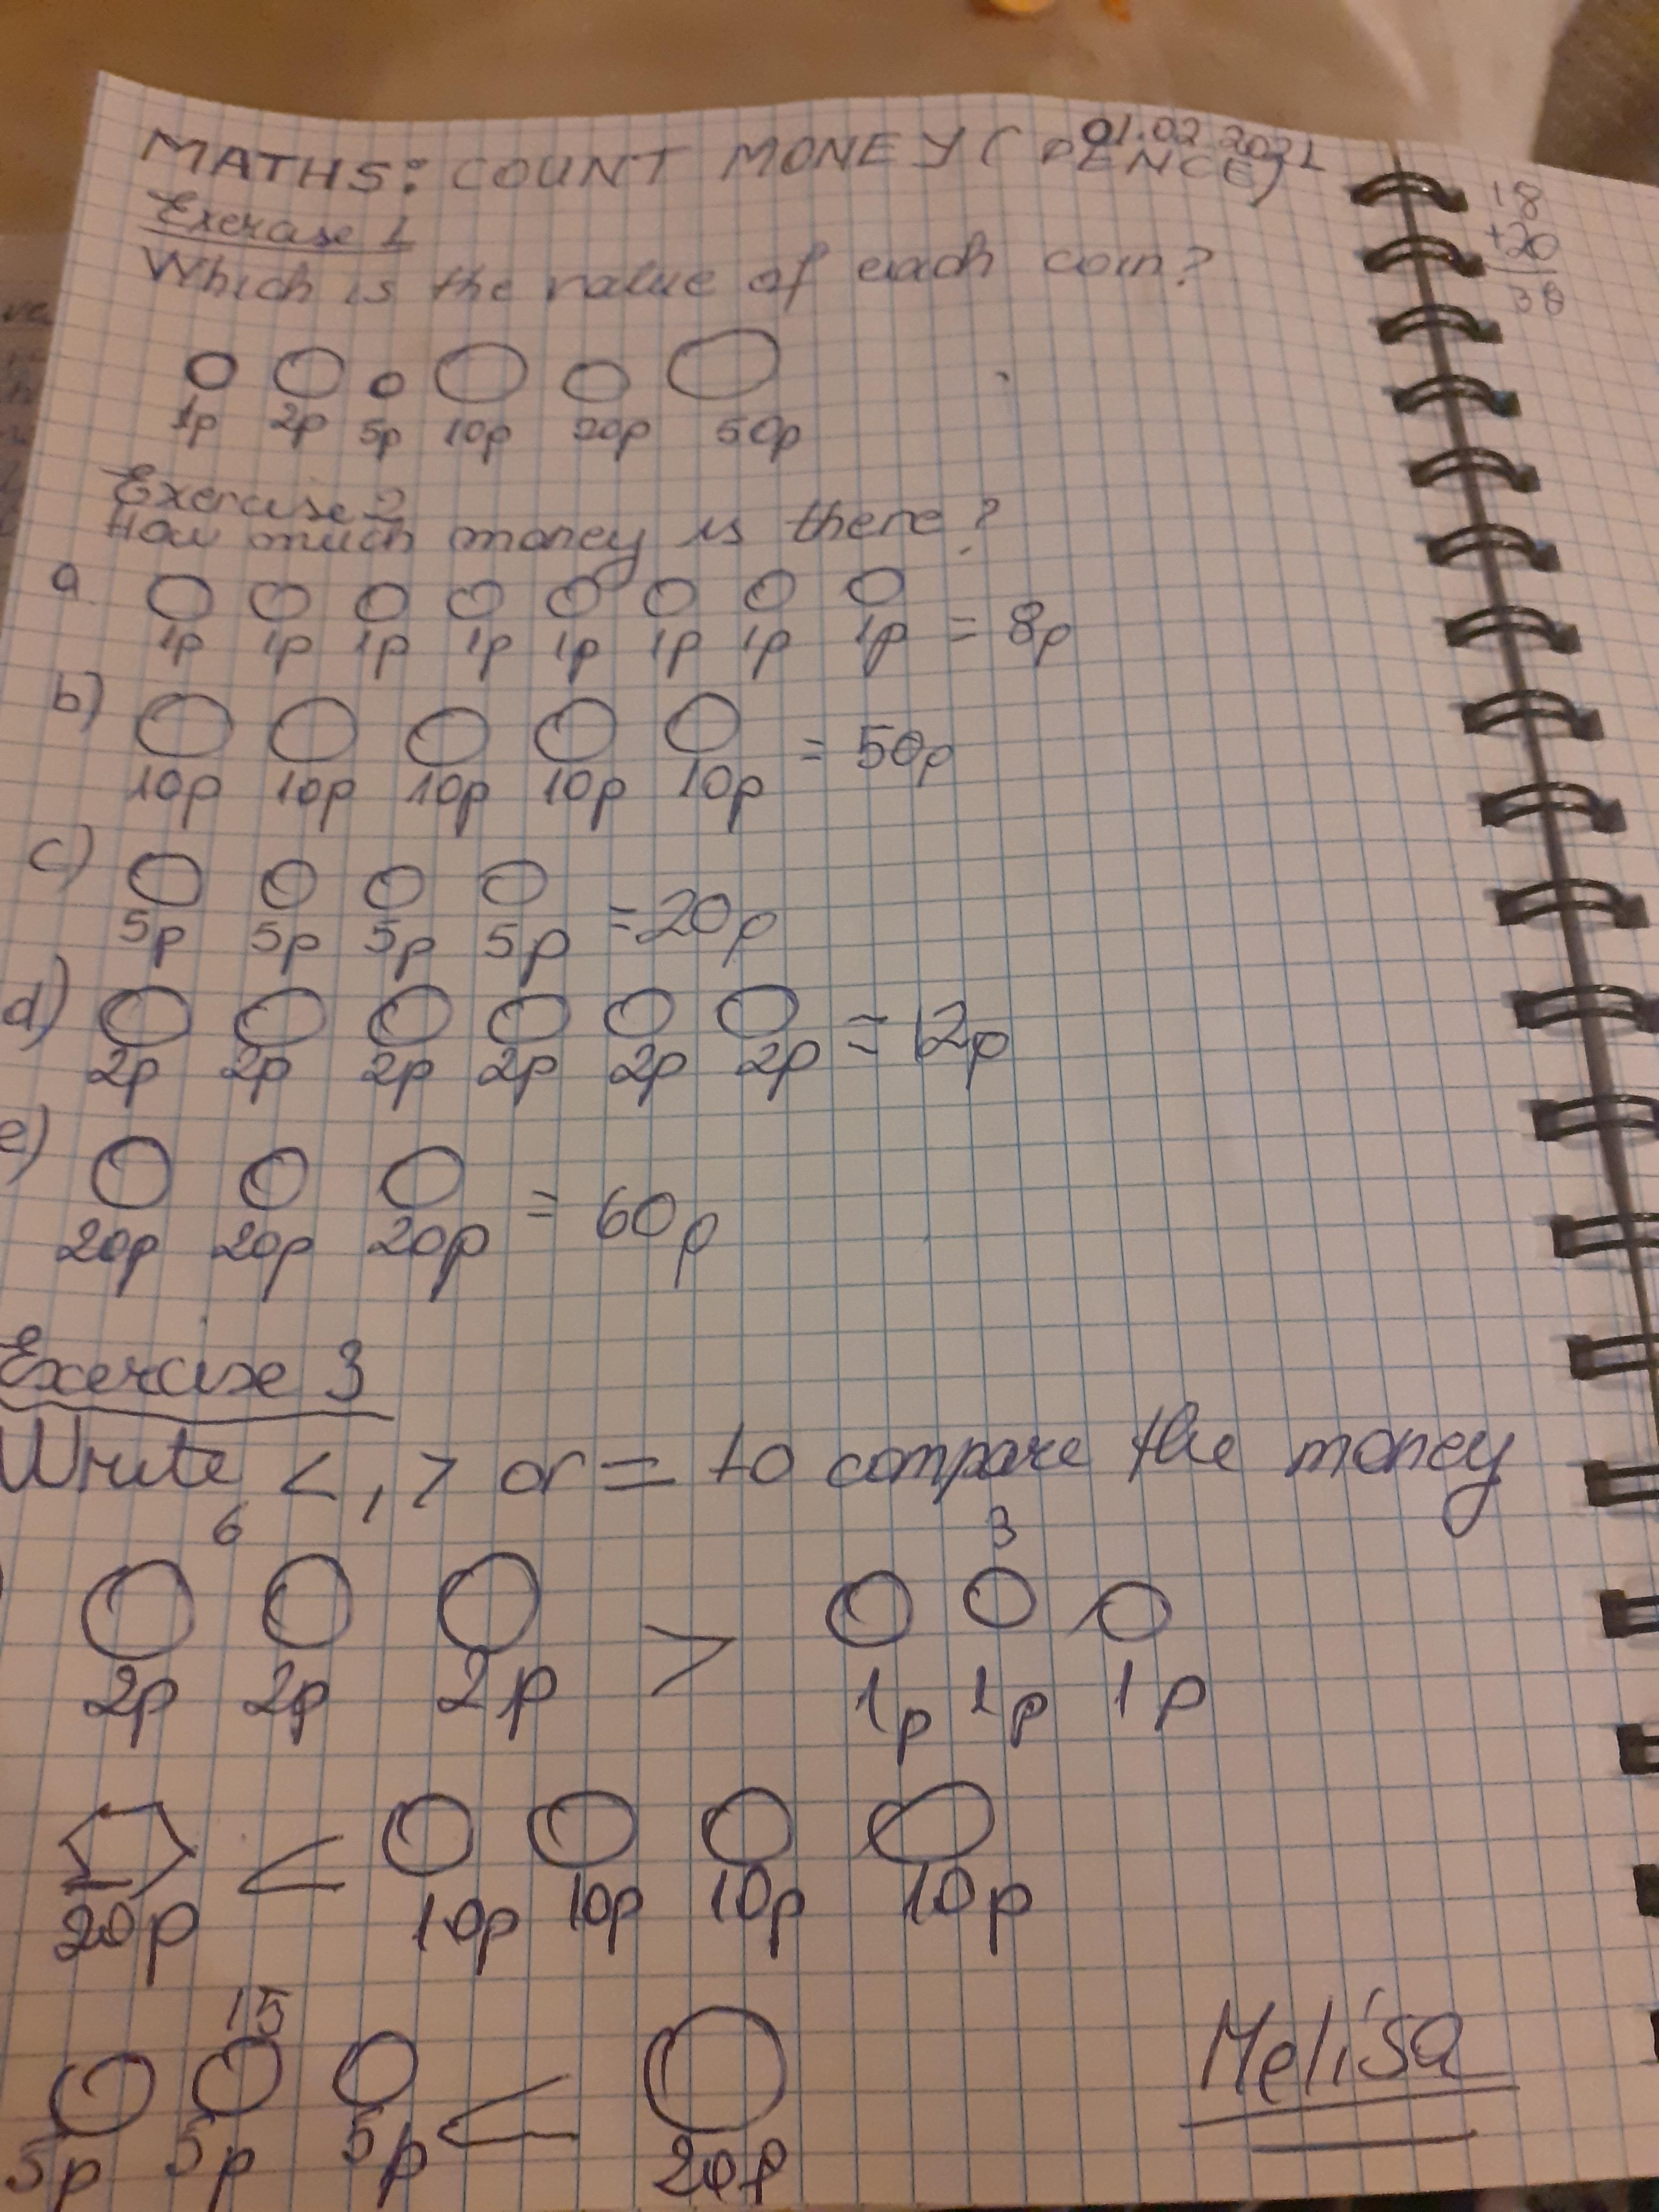 01.02.2021
MATHS: COUNT MONEY (PENCE)
Exercise 1
Which is the value of each coin?
1p 2p 5p 10p 20p 50p
Exercise 2
How much money is there?
a 1p 1p 1p 1p 1p 1p 1p 1p = 8p
b) 10p 10p 10p 10p 10p = 50p
c) 5p 5p 5p 5p = 20p
d) 2p 2p 2p 2p 2p 2p = 12p
e) 20p 20p 20p = 60p
Exercise 3
Write <, > or = to compare the money
6 3
2p 2p 2p > 1p 1p 1p
20p < 10p 10p 10p 10p
15
5p 5p 5p < 20p
Melisa
18
+20
38